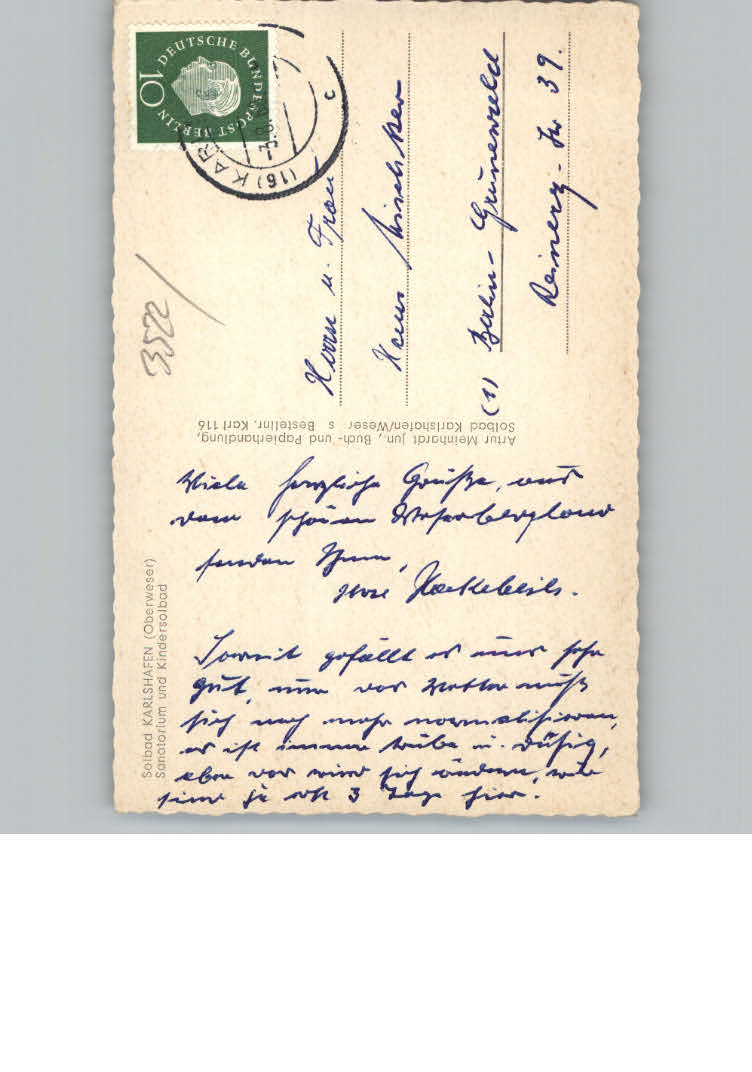 DEUTSCHE BUNDESPOST BERLIN
10
(16) KAR
-3.8.
c
3522
Herrn u. Frau
Hans
(1) Berlin-Grunewald
Reinerz-Str 39.
Artur Meinhardt jun., Buch- und Papierhandlung,
Solbad Karlshafen/Weser s Bestellnr. Karl 116
Solbad KARLSHAFEN (Oberweser)
Sanatorium und Kindersolbad
Viele herzliche Grüße, aus
dem schönen Weserbergland
senden Ihnen,
Ihre
Soweit gefällt es uns sehr
gut, nur das Wetter muß
sich noch mehr normalisieren,
es ist immer trübe u. diesig,
aber das wird sich ändern, wir
sind ja erst 3 Tage hier.